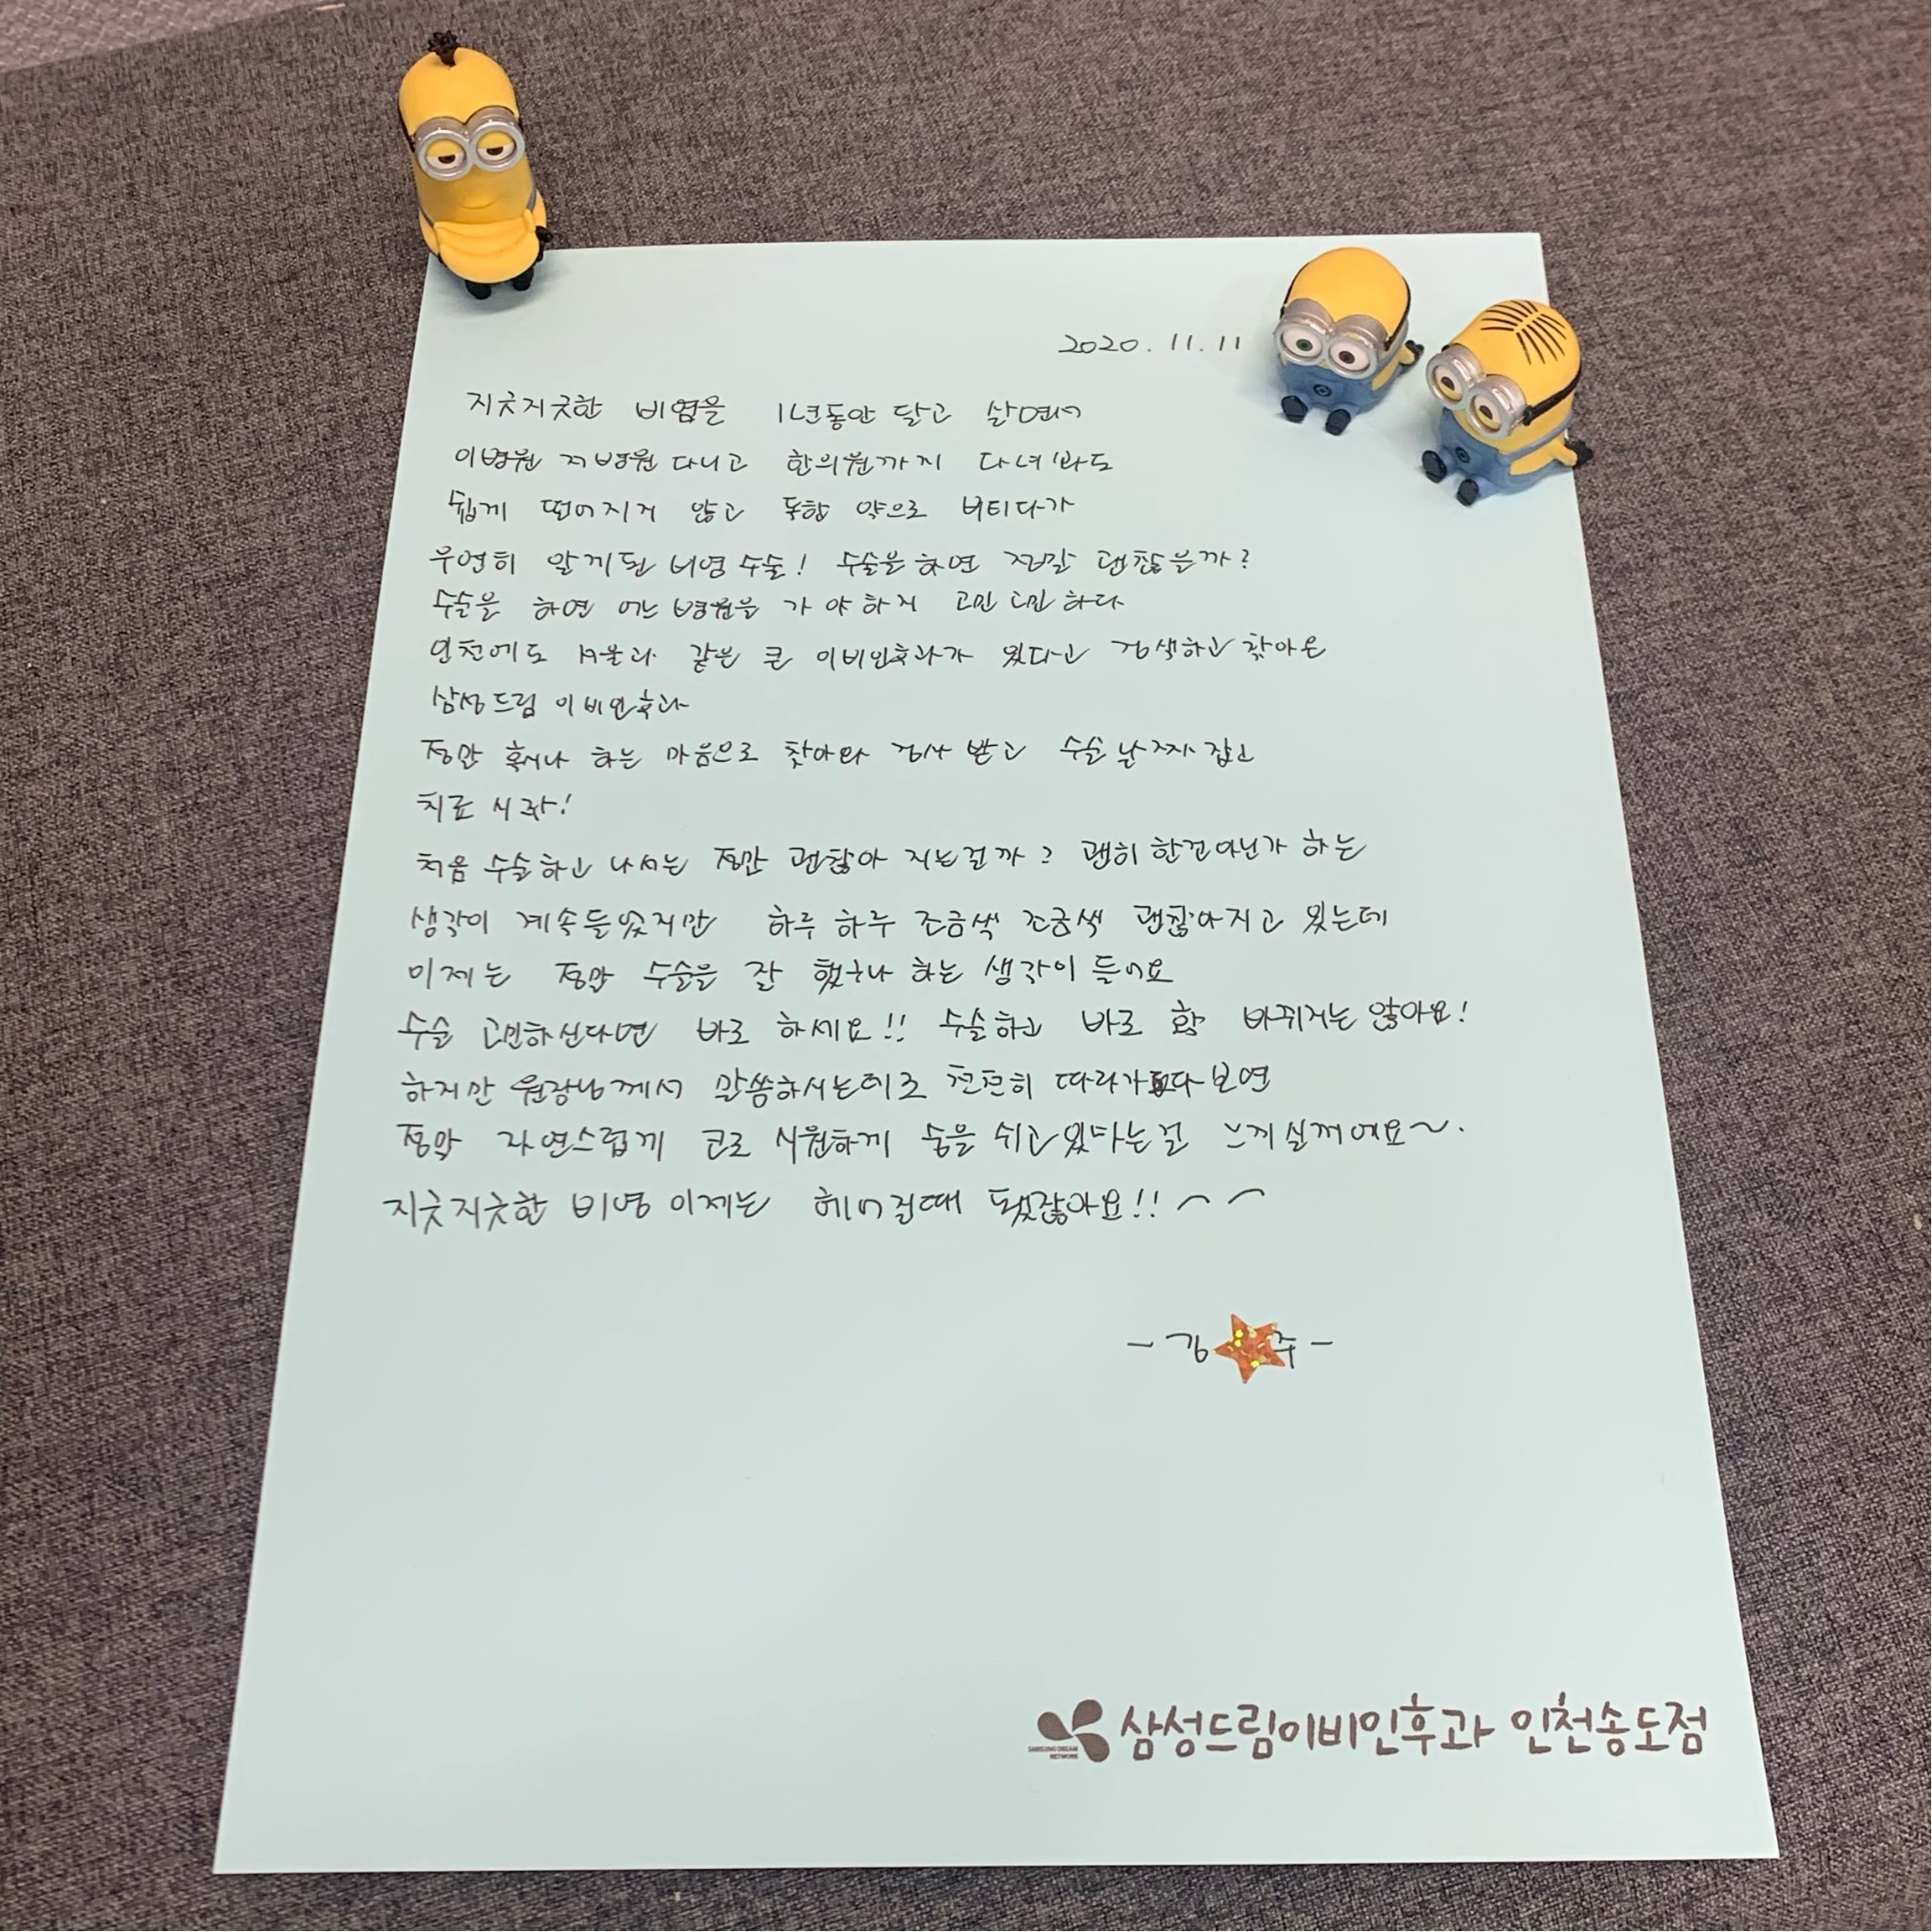 2020. 11. 11
지긋지긋한 비염을 1년동안 달고 살면서
이병원 저병원 다니고 한의원까지 다녀봐도
쉽게 떨어지지 않고 독한 약으로 버티다가
우연히 알게된 비염수술! 수술을 하면 정말 괜찮을까?
수술을 하면 어느 병원을 가야하지 고민고민하다
인천에도 서울과 같은 큰 이비인후과가 있다고 검색하고 찾아온
삼성드림 이비인후과
정말 혹시나 하는 마음으로 찾아와 검사 받고 수술날짜 잡고
치료 시작!
처음 수술하고 나서는 정말 괜찮아 지는걸까? 괜히 한건아닌가 하는
생각이 계속들었지만 하루 하루 조금씩 조금씩 괜찮아지고 있는데
이제는 정말 수술을 잘 했구나 하는 생각이 들어요
수술 고민하신다면 바로 하세요!! 수술하고 바로 확 바뀌지는 않아요!
하지만 원장님께서 말씀하시는데로 천천히 따라가다보면
정말 자연스럽게 코로 시원하게 숨을 쉬고있다는걸 느끼실꺼에요~.
지긋지긋한 비염 이제는 헤어질때 됐잖아요!! ^ ^
- 김 주 -
삼성드림이비인후과 인천송도점
SAMSUNG DREAM
NETWORK